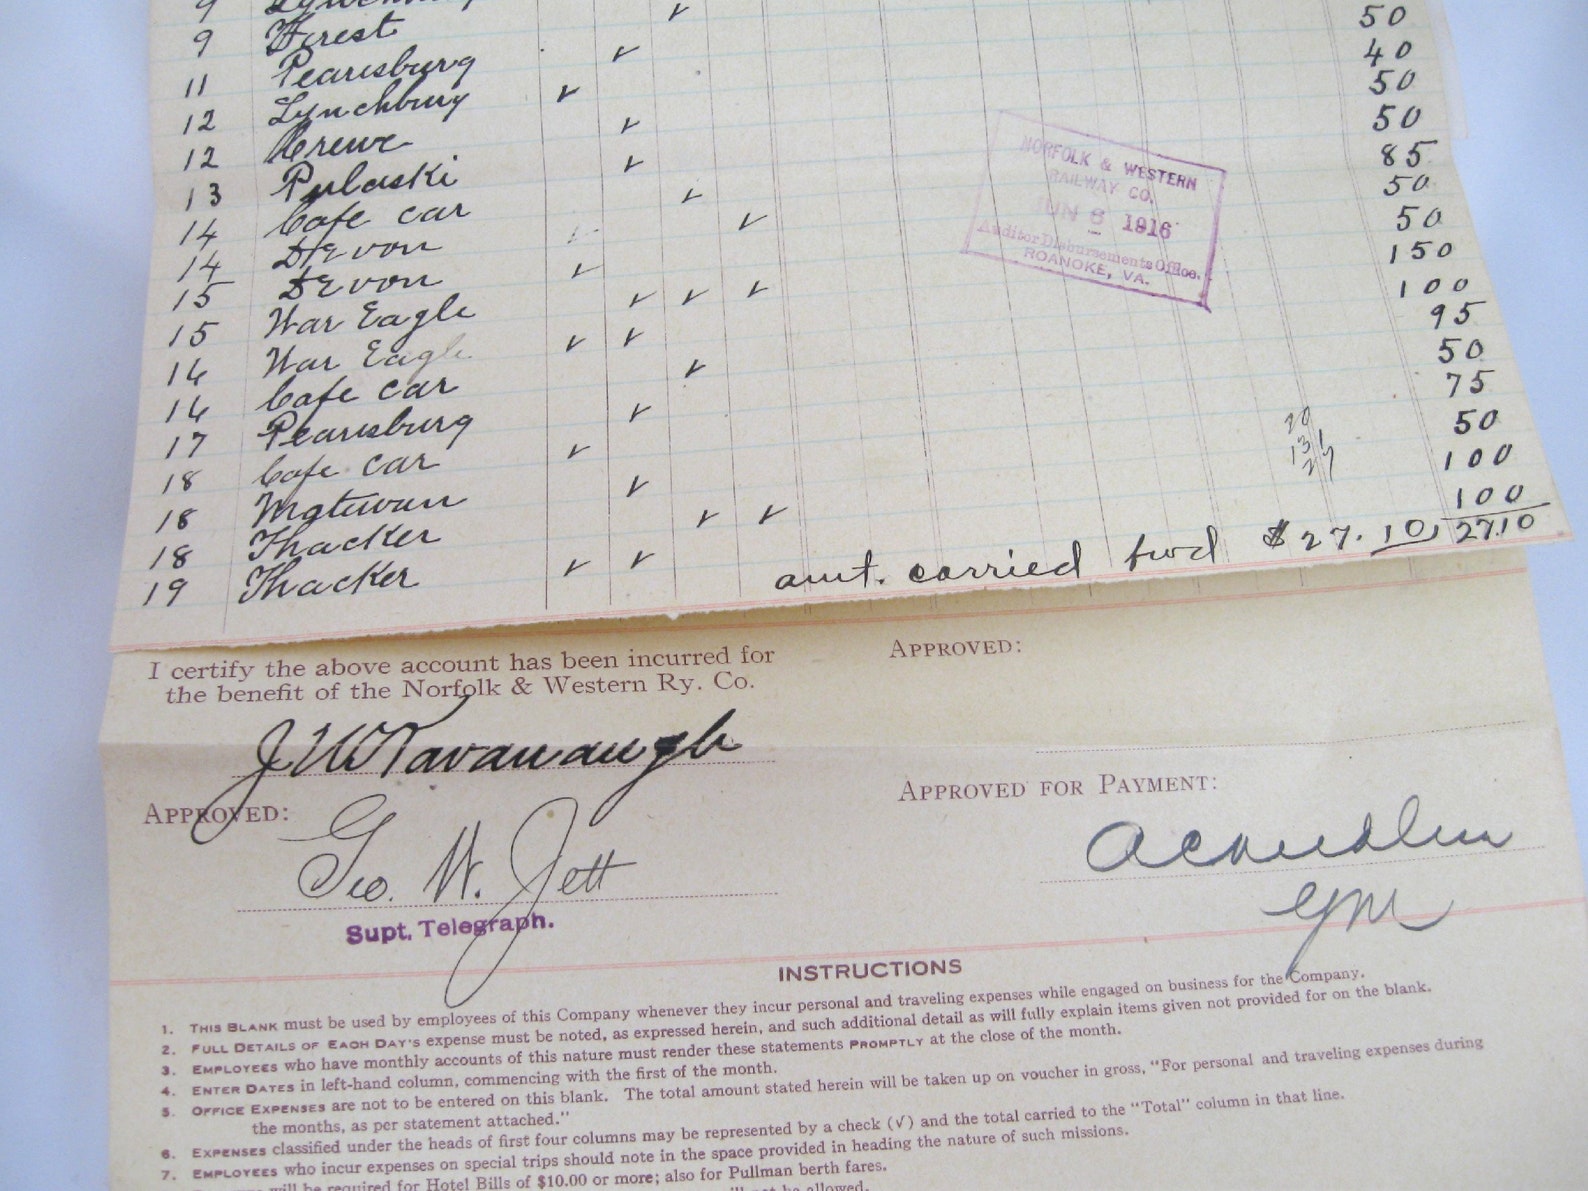 9
9 Forest 50
11 Pearisburg 40
12 Lynchburg 50
12 Crewe 50
13 Pulaski 85
14 Cafe car 50
14 Devon 50
15 Devon 150
15 War Eagle 100
16 War Eagle 95
16 Cafe car 50
17 Pearisburg 75
18 Cafe car 50
18 Matewan 100
18 Thacker 100
19 Thacker
amt. carried fwd $27.10, 27.10
20
13
27
NORFOLK & WESTERN
RAILWAY CO.
JUN 8 1916
Auditor Disbursements Office.
ROANOKE, VA.
I certify the above account has been incurred for
the benefit of the Norfolk & Western Ry. Co.
J W Kavanaugh
APPROVED:
APPROVED:
Geo. W. Jett
Supt. Telegraph.
APPROVED FOR PAYMENT:
INSTRUCTIONS
1. THIS BLANK must be used by employees of this Company whenever they incur personal and traveling expenses while engaged on business for the Company.
2. FULL DETAILS OF EACH DAY'S expense must be noted, as expressed herein, and such additional detail as will fully explain items given not provided for on the blank.
3. EMPLOYEES who have monthly accounts of this nature must render these statements PROMPTLY at the close of the month.
4. ENTER DATES in left-hand column, commencing with the first of the month.
5. OFFICE EXPENSES are not to be entered on this blank. The total amount stated herein will be taken up on voucher in gross, "For personal and traveling expenses during
the months, as per statement attached."
6. EXPENSES classified under the heads of first four columns may be represented by a check (√) and the total carried to the "Total" column in that line.
7. EMPLOYEES who incur expenses on special trips should note in the space provided in heading the nature of such missions.
will be required for Hotel Bills of $10.00 or more; also for Pullman berth fares.
be allowed.